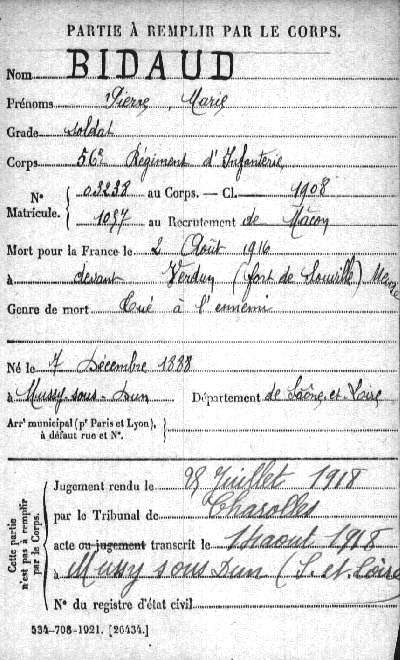 PARTIE À REMPLIR PAR LE CORPS.
Nom BIDAUD
Prénoms Pierre Marie
Grade soldat
Corps 56e Régiment d'Infanterie
N° Matricule. { 03238 au Corps. — Cl. 1908
1037 au Recrutement de Mâcon
Mort pour la France le 2 Août 1916
à devant Verdun (fort de Souville) Meuse
Genre de mort Tué à l'ennemi
Né le 7 Décembre 1888
à Mussy-sous-Dun Département de Saône-et-Loire
Arrt municipal (pr Paris et Lyon),
à défaut rue et N°.
Cette partie n'est pas à remplir par le Corps.
Jugement rendu le Juillet 1918
par le Tribunal de Charolles
acte ou jugement transcrit le août 1918
à Mussy sous Dun (S. et Loire)
N° du registre d'état civil
534-708-1921. [26434.]